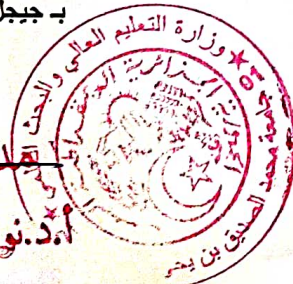 بـ جيجل
وزارة التعليم العالي والبحث العلمي
الجمهورية الجزائرية الديمقراطية
جامعة محمد الصديق بن يحيى
أ.د.نو